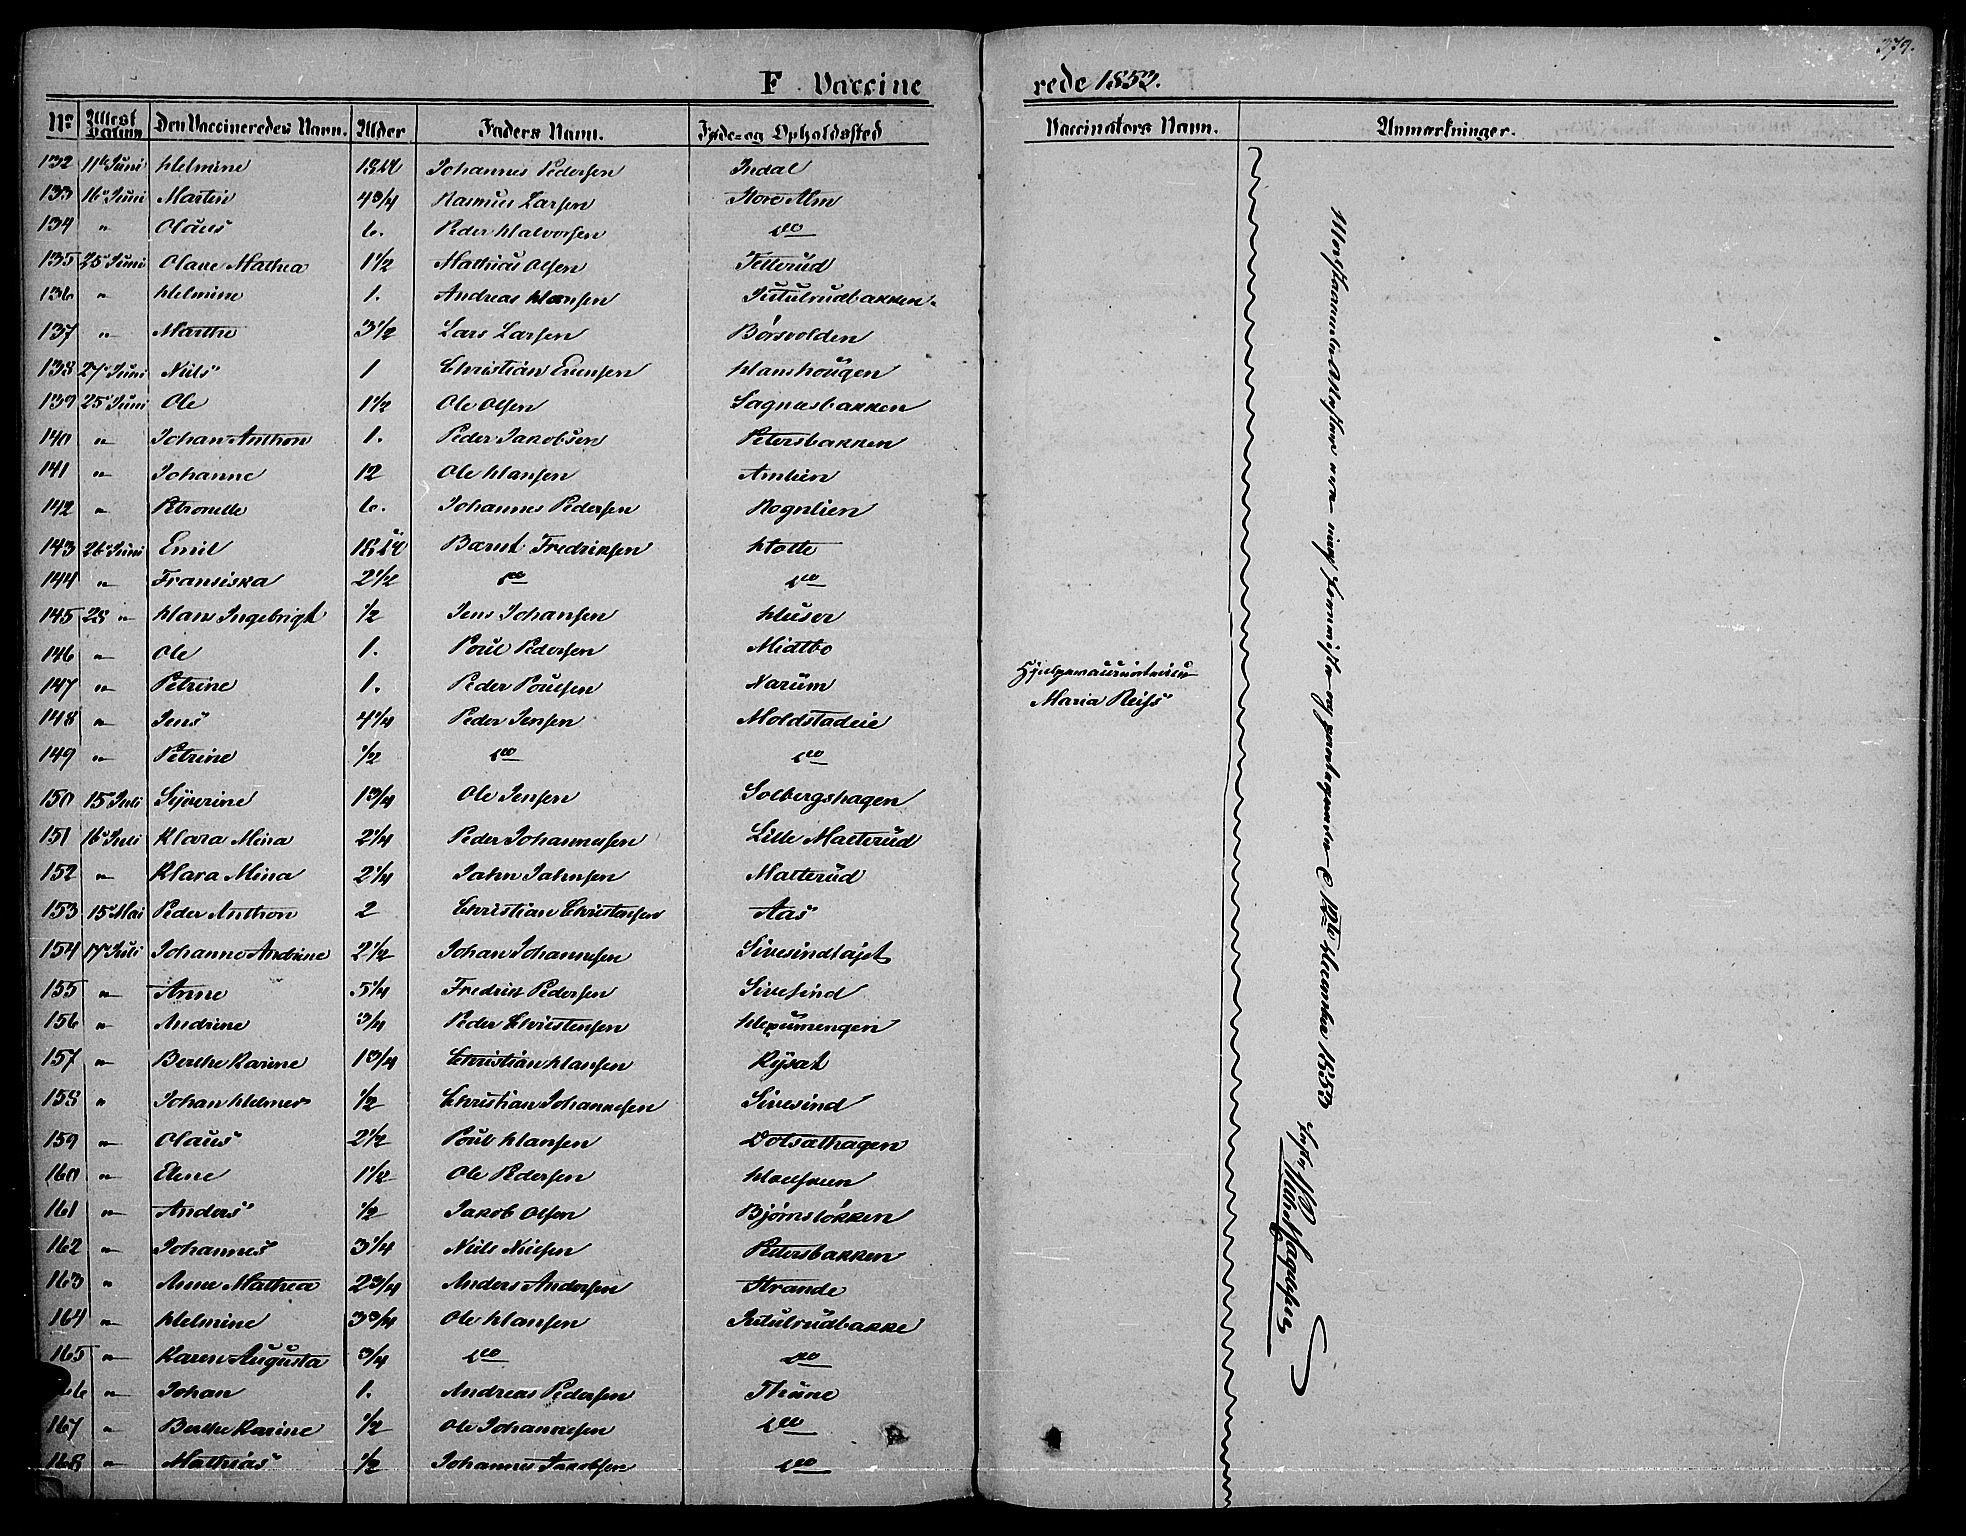 379.
F Vaccine rede 1853.
No Attest Datum Den Vaccineredes Navn. Alder Faders Navn. Føde- og Opholdssted Vaccinators Navn. Anmærkninger.
132 11te Juni Helmine Johannes Pedersen Indal
133 16de Juni Martin 4 3/4 Rasmus Larsen Store Alm
134 " Olaus 6. Peder Halvorsen do
135 25de Juni Olave Mathea 1 1/2 Mathias Olsen Tetterud
136 " Helmine 1. Andreas Hansen Jutulrudbakken.
137 " Marthe 3 1/2 Lars Larsen Børsvolden
138 27de Juni Nils 1 Christian Evensen Hanshougen
139 25de Juni Ole 1 1/2 Ole Olsen Sagnæsbakken
140 " Johan Anthon 1. Peder Jakobsen Petersbakken
141 " Johanne 12 Ole Hansen Amlien
142 " Petronelle 6. Johannes Pedersen Rognlien
143 26de Juni Emil Bærnt Fredriksen Hotte
144 " Fransiska 2 1/2 do do
145 28 " Hans Ingebrigt 1/2 Jens Johansen Huser
146 " Ole 1. Poul Pedersen Midtbo
147 " Petrine 1. Peder Poulsen Narum
148 " Jens 4 1/4 Peder Jensen Moldstadeie
149 " Petrine 1/2 do do
Hjelpevaccinatricen
Maria Reiss
150 15 Juli Syverine 1 3/4 Ole Jensen Solbergshagen
151 16de Juli Klara Mina 2 1/4 Peder Johannesen Lille Mæterud
152 " Klara Mina 2 1/4 Jahn Jahnsen Mæterud
153 15de Mai Peder Anthon 2 Christian Christensen Aas
154 17de Juli Johanne Andrine 2 1/2 Johan Johannesen Sivesindtajet
155 " Anne 5 1/4 Fredrik Pedersen Sivesind
156 " Andrine 3/4 Peder Christensen Hexumengen
157 " Berthe Karine 1 3/4 Christian Hansen Rysat
158 " Johan Helmer 1/2 Christian Johannesen Sivesind
159 " Olaus 2 1/2 Poul Hansen Dolsæthagen
160 " Eline 1 1/2 Ole Pedersen
161 " Anders 1/2 Jakob Olsen Bjørnsløkken
162 " Johannes 3 1/4 Nils Nielsen Petersbakken
163 " Anne Mathea 2 3/4 Anders Andersen Strande
164 " Helmine 3 3/4 Ole Hansen Jutulrudbakke
165 " Karen Augusta 3/4 do do
166 " Johan 1. Andreas Pedersen Thune
167 " Berthe Karine 1/2 Ole Johannesen do
168 " Mathias 1/2 Johannes Jakobsen do
Attester ere mig og 1853